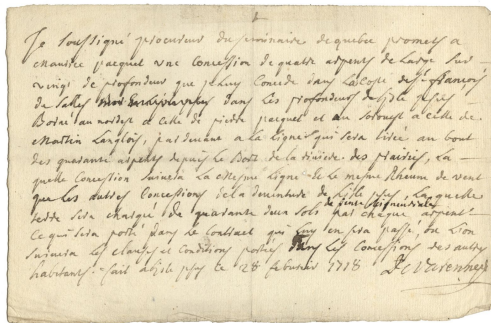 Je soussigné procureur du seminaire de quebec promets a
paquet une Concession de quatre arpents de Large sur
vingt de profondeur que je Luy Concede dans La Coste de St françois
de Salles dans Les profondeurs de Lisle
Borne au nordest a Celle de pierre paquet et au sorouest a Celle de
Martin Langlois, a La ligne qui sera tirée au bout
des quarante arpents depuis Le Bord de la Riviere des prairies, La
quelle Concession suivera La mesme Ligne Le mesme Rheume de vent
que Les autres Concessions de La devanture de Lisle Laquelle
terre sera chargée de quarante deux sols par chaque arpent
Ce qui sera porté dans Le Contract qui Luy en sera passé, ou Lon
suivera Les clauses et Conditions portées dans Les Concessions des autres
habitants. fait a Lisle Le 28 1718 DeVarennes